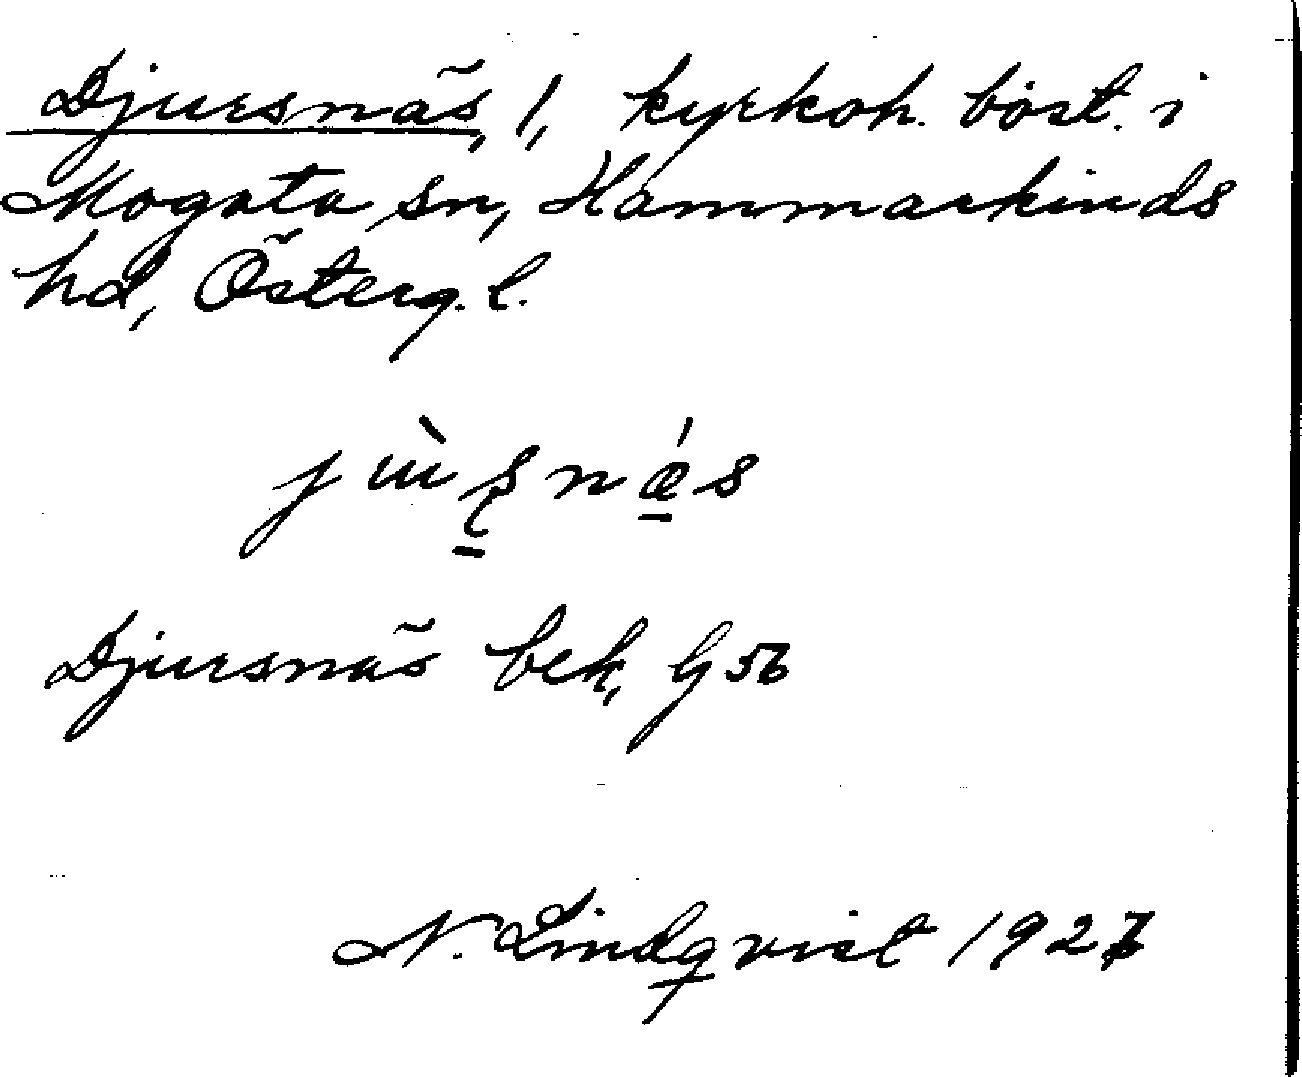 Djursnäs, 1, kyrkoh. bost. i
Mogata sn, Hammarkinds
hd, Österg. l.
Djursnäs bek, G 56
N. Lindqvist